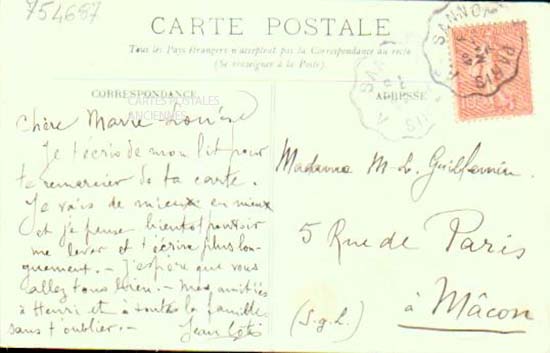 754687
CARTE POSTALE
Tous les Pays étrangers n'acceptent pas la Correspondance au recto
(Se renseigner à la Poste).
CORRESPONDANCE
ADRESSE
CARTES POSTALES
ANCIENNES
SANNO
PARIS
Chère Marie Louise
Je t'écris de mon lit pour
te remercier de ta carte.
Je vais de mieux en mieux
et je pense bientôt pouvoir
me lever et t'écrire plus lon-
guement. - J'espère que vous
allez tous bien. - Mes amitiés
à Henri et à toute la famille
sans t'oublier. - Jean
Madame M. L.
5 Rue de Paris
à Mâcon
(S.&L.)